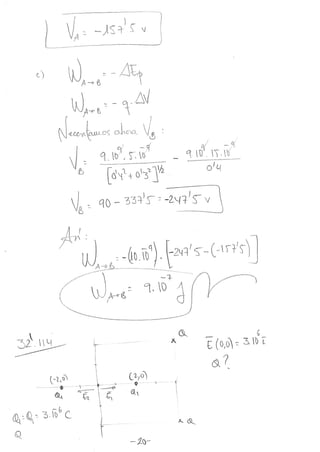 V_A = -157'5 v
c) W_A→B = -ΔEp
W_A→B = -q·ΔV
Necesitamos ahora V_B:
V_B = 9·10^9·5·10^-9 / [0'4²+0'3²]^½ - 9·10^9·15·10^-9 / 0'4
V_B = 90 - 337'5 = -247'5 v
Así:
W_A→B = -(10·10^-9)·[-247'5-(-157'5)]
W_A→B = 9·10^-7 J
32'.114
Q
E(0,0) = 3·10^6 i
Q?
(-2,0) (2,0)
Q₁ E₂ E₁ Q₁
Q₁ = Q₁ = 3·10^-6 C
Q
Q
-20-